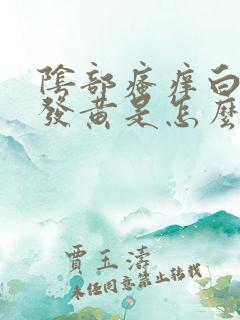 陰部瘙痒白
發黃是怎麼
賈玉濤
未经同意禁止转载